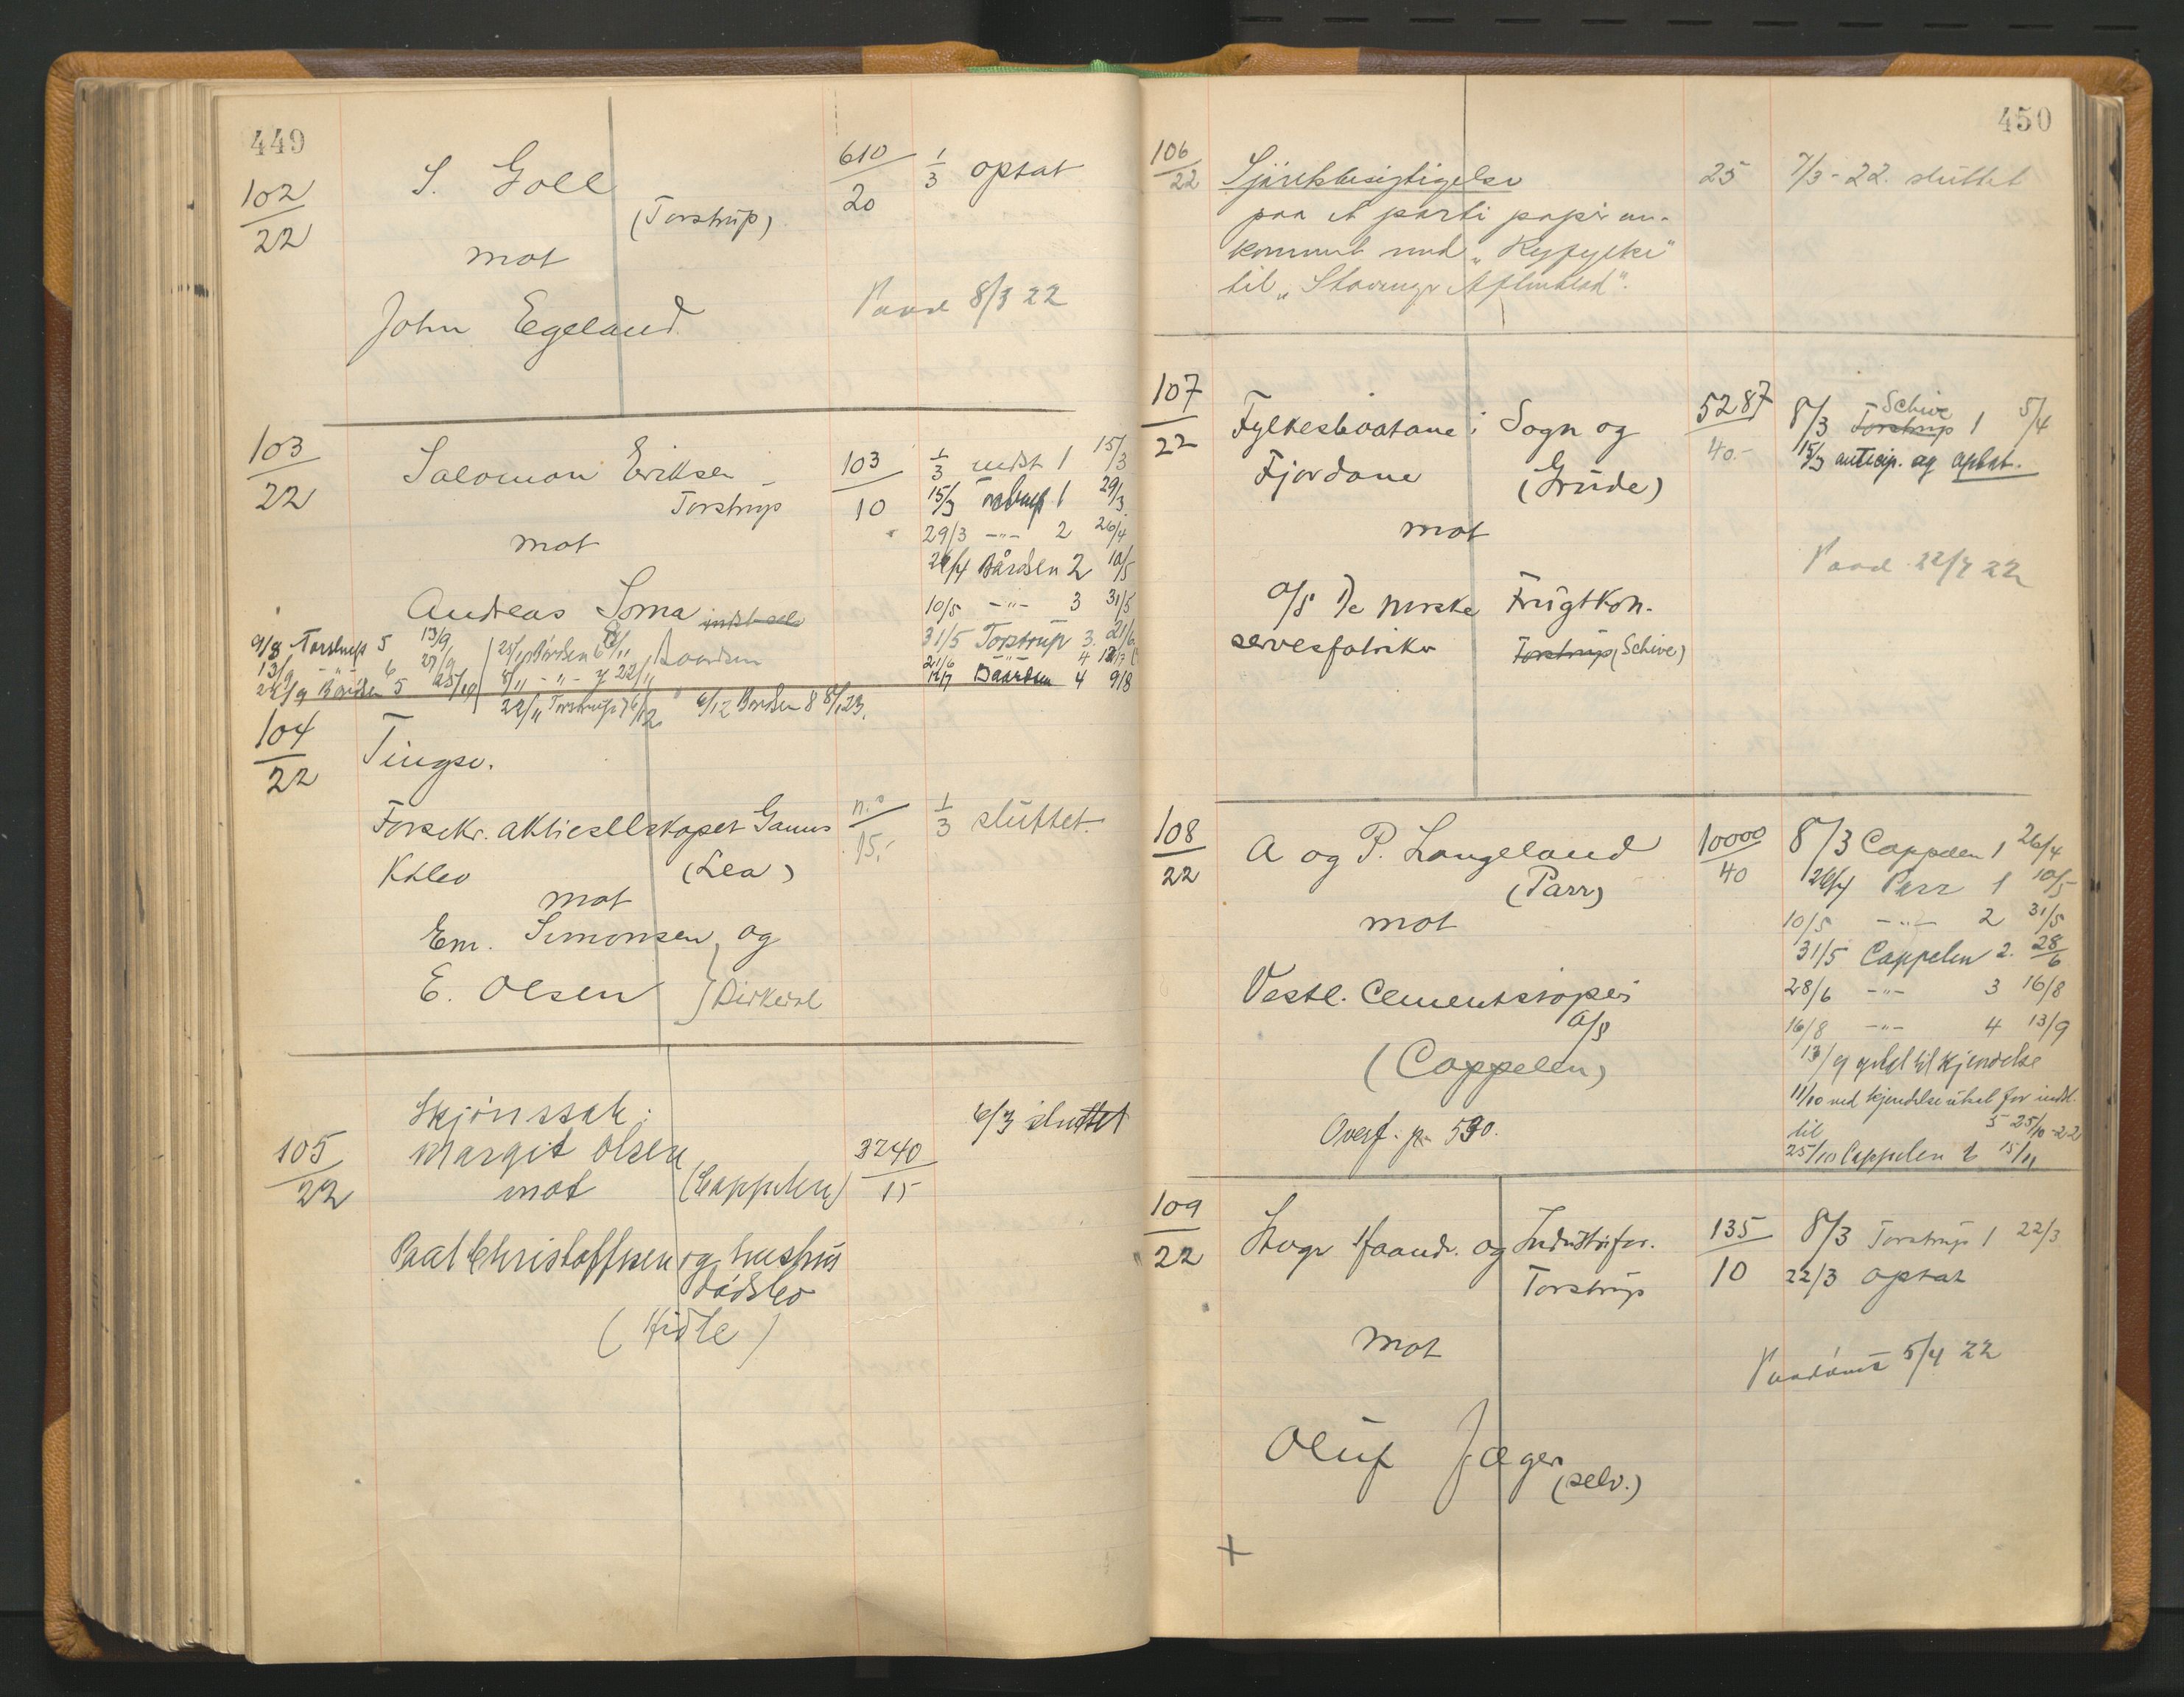 449
102/22
S. Goll
(Torstrup)
mot
John Egeland
610/20
1/3 optat
8/3 22
103/22
Salomon Eriksen
Torstrup
mot
Andreas Soma
103/10
1/3 indst 1 15/3
15/3 Torstrup 1 29/3
29/3 -"- 2 26/4
26/4 Bårdsen 2 10/5
10/5 -"- 3 31/5
31/5 Torstrup 3. 21/6
21/6 -"- 4 12/7
12/7 Baardsen 4 9/8
9/8 Torstrup 5 13/9
13/9 -"- 6 27/9
27/9 Bårdsen 5 25/10
25/10 Bårdsen 6 8/11
8/11 -"- 7 22/11
Baardsen
22/11 Torstrup 7 6/12
6/12 Bårdsen 8 8/1 23.
104/22
Tingsv.
Forsekr. aktieselskapet Gauus
(Lea)
mot
Em. Simonsen og
E. Olsen
n.o/15,-
1/3 sluttet.
105/22
Skjönssak:
Margit Olsen
mot (Cappelen)
Paal Christoffersen og hustrus
dödsbo
(Hidle)
3240/15
6/3 sluttet
450
106/22
Sjørettsbesigtigelse
paa et parti papir an-
kommet med "Ryfylke"
til "Stavanger Aftenblad".
25
7/3-22. sluttet
107/22
Fylkesbaatane i Sogn og
Fjordane (Grude)
mot
A/S De norske Frugtkon-
servesfabriker Torstrup (Schive)
5287/40.-
Schive
8/3 Torstrup 1 5/4
15/3 anticip. og optat.
22/4 22
108/22
A og P. Langeland
(Parr)
mot
Vestl. Cementstøperi
A/S
(Cappelen)
Overf. p. 530.
10000/40
8/3 Cappelen 1 26/4
26/4 Parr 1 10/5
10/5 -"- 2 31/5
31/5 Cappelen 2. 28/6
28/6 -"- 3 16/8
16/8 -"- 4 13/9
13/9 optat til kjendelse
11/10 ved kjendelse utsat for indst.
til 5 25/10-22
25/10 Cappelen 6 15/11
109/22
Stvgr Haandv. og Industrifor.
Torstrup
mot
Oluf Jæger
(selv.)
135/10
8/3 Torstrup 1 22/3
22/3 optat
5/4 22
+